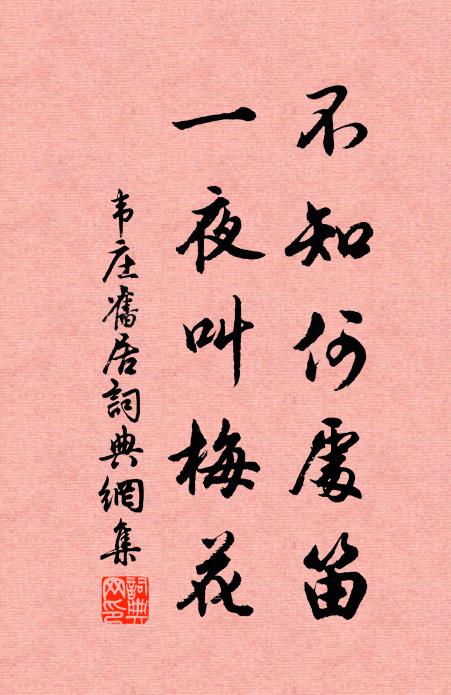 不知何處笛
一夜叫梅花
韦庄舊居詞典網集
詞典网印